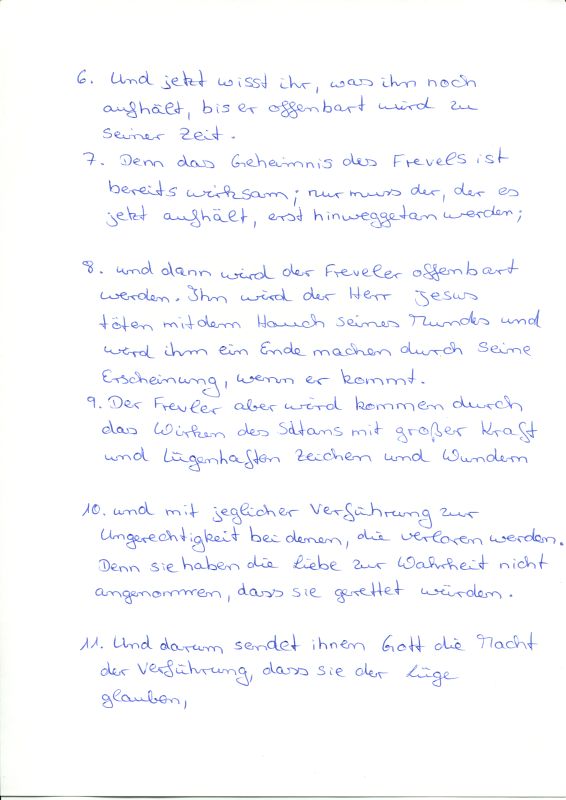 6. Und jetzt wisst ihr, was ihn noch
aufhält, bis er offenbart wird zu
seiner Zeit.
7. Denn das Geheimnis des Frevels ist
bereits wirksam; nur muss der, der es
jetzt aufhält, erst hinweggetan werden;
8. und dann wird der Freveler offenbart
werden. Ihn wird der Herr Jesus
töten mit dem Hauch seines Mundes und
wird ihm ein Ende machen durch seine
Erscheinung, wenn er kommt.
9. Der Frevler aber wird kommen durch
das Wirken des Satans mit großer Kraft
und lügenhaften Zeichen und Wundern
10. und mit jeglicher Verführung zur
Ungerechtigkeit bei denen, die verloren werden.
Denn sie haben die Liebe zur Wahrheit nicht
angenommen, dass sie gerettet würden.
11. Und darum sendet ihnen Gott die Macht
der Verführung, dass sie der Lüge
glauben,